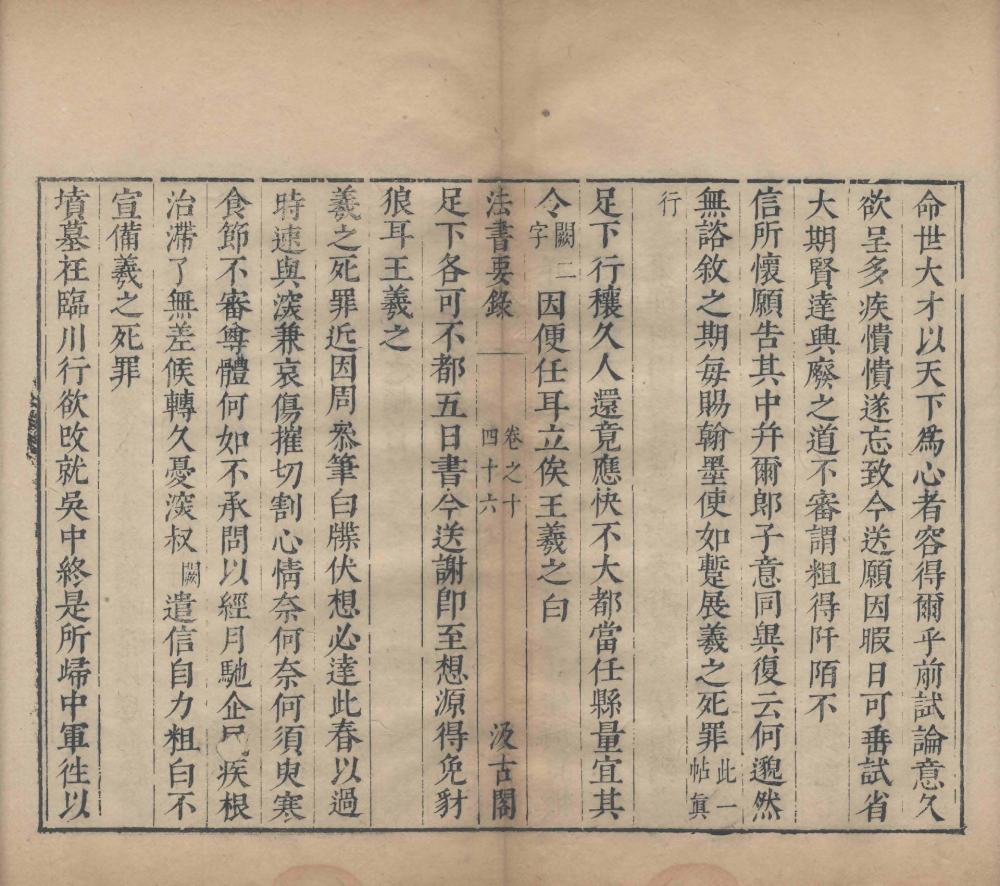 命世大才以天下爲心者容得爾乎前試論意久
欲呈多疾憒憒遂忘致今送願因暇日可垂試省
大期賢達興廢之道不審謂粗得阡陌不
信所懷願告其中幷爾郎子意同異復云何邈然
無諮敘之期每賜翰墨使如蹔展羲之死罪此一帖眞
行
足下行穰久人還竟應快不大都當任縣量宜其
令闕二字因便任耳立俟王羲之白
法書要錄 卷之十 四十六 汲古閣
足下各可不都五日書今送謝卽至想源得免豺
狼耳王羲之
羲之死罪近因周叅筆白牒伏想必達此春以過
時速與深兼哀傷摧切割心情奈何奈何須臾寒
食節不審尊體何如不承問以經月馳企疾根
治滯了無差候轉久憂深叔闕遣信自力粗白不
宣備羲之死罪
墳墓在臨川行欲改就吳中終是所歸中軍往以